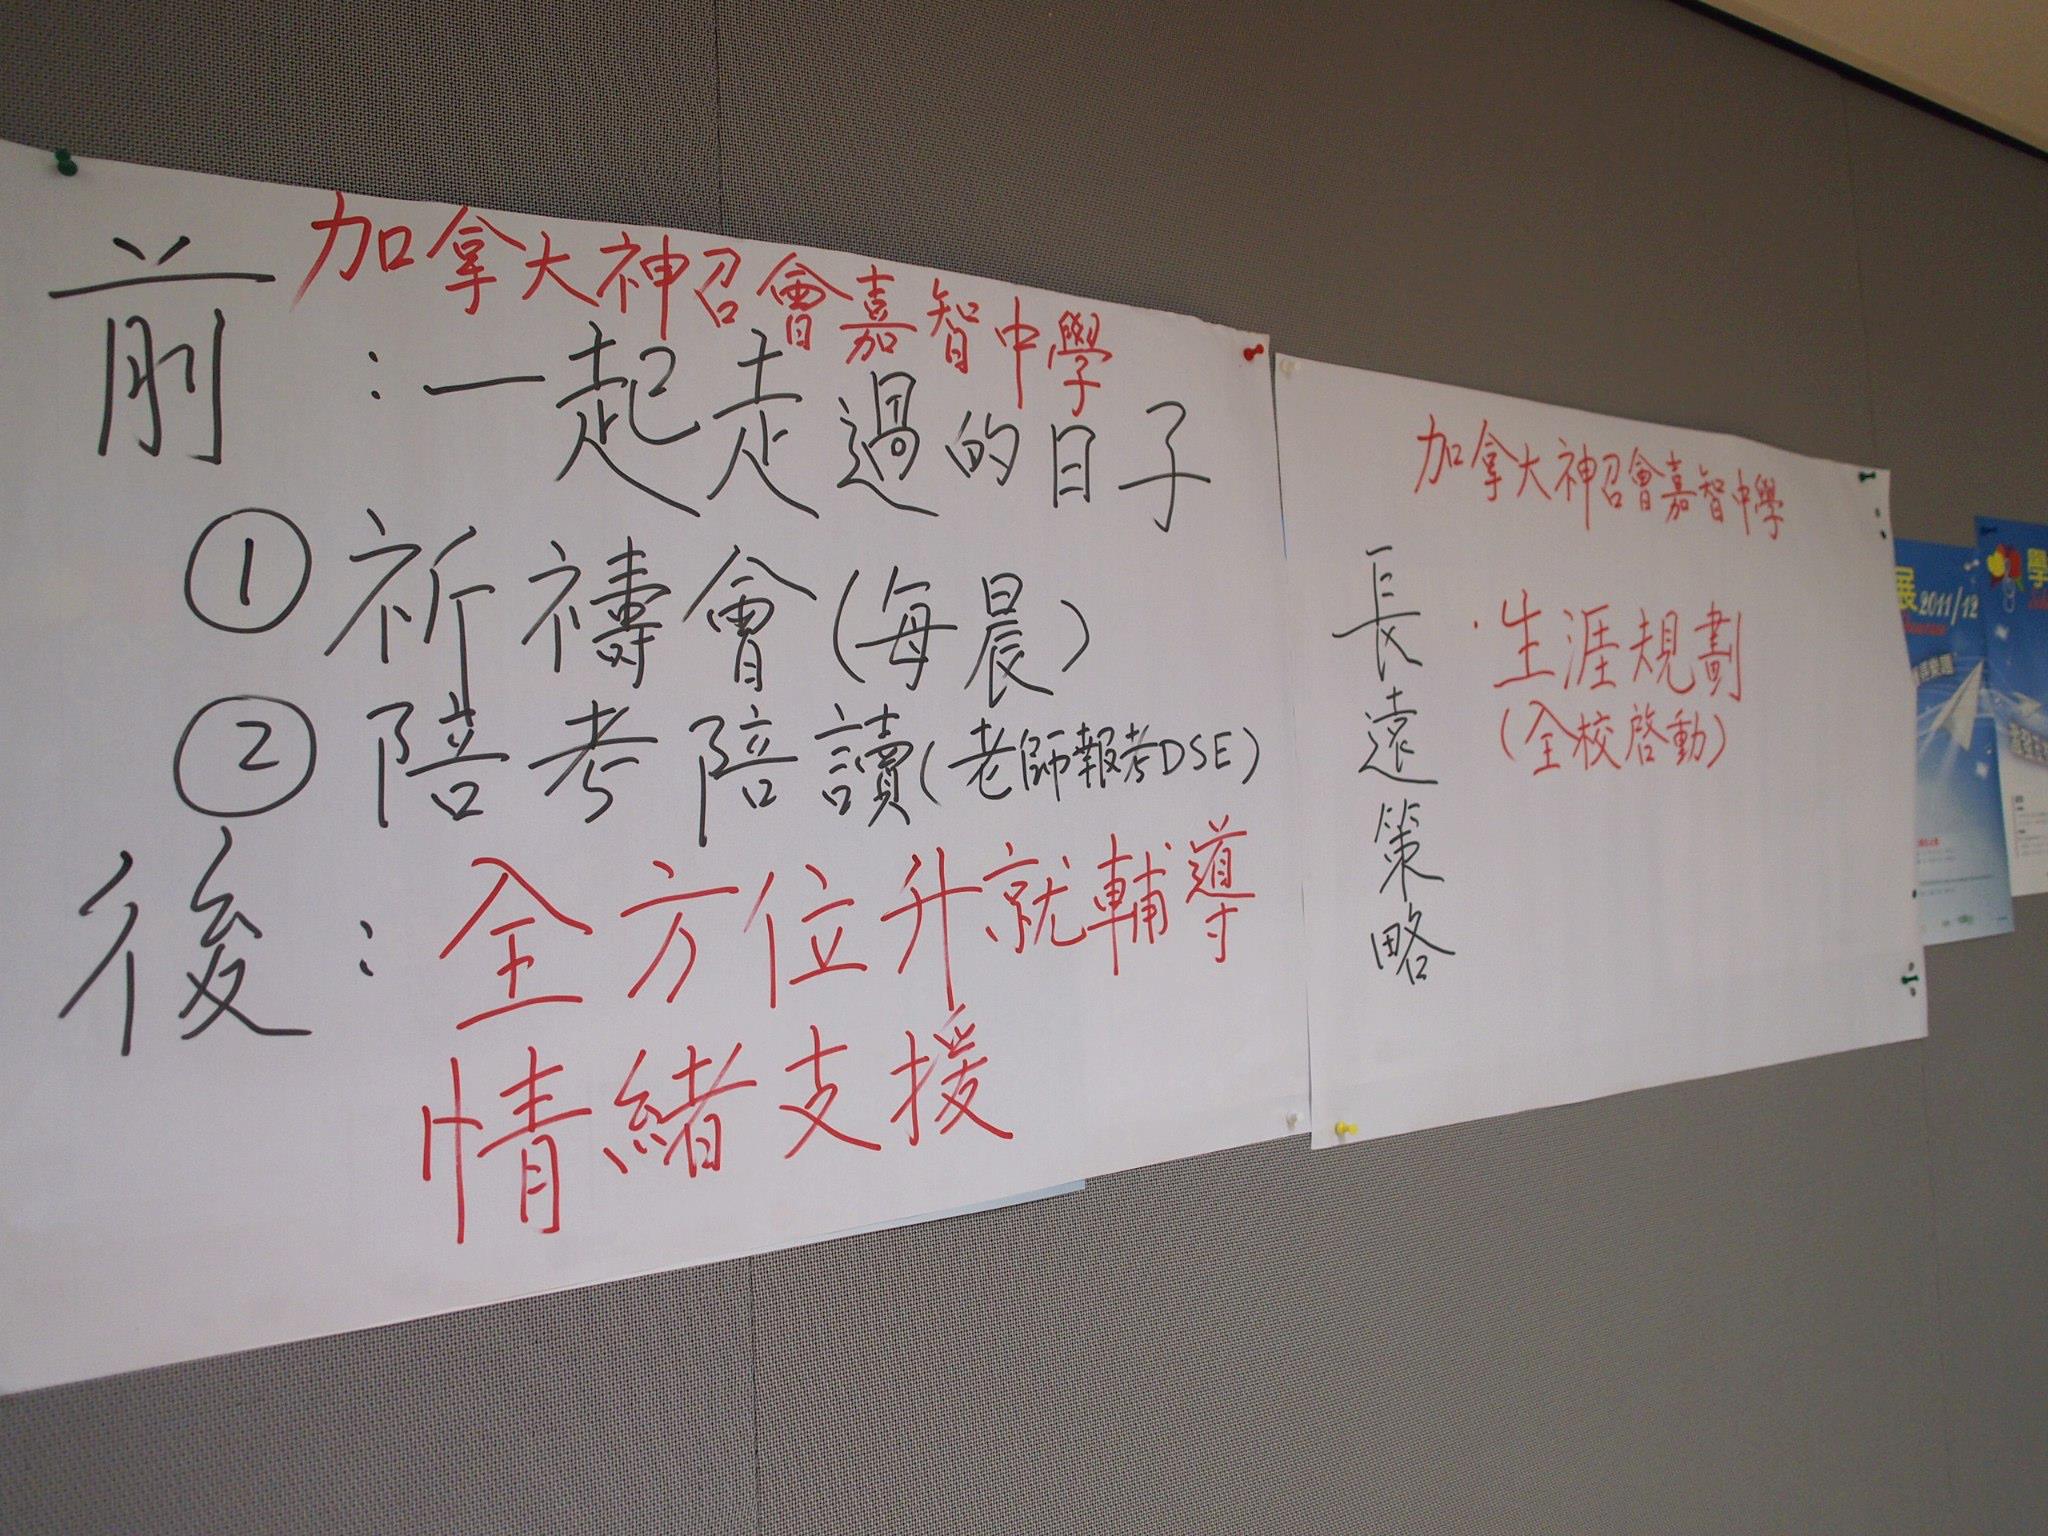 加拿大神召會嘉智中學
前:一起走過的日子
① 祈禱會(每晨)
② 陪考陪讀(老師報考DSE)
後:全方位升就輔導
情緒支援
加拿大神召會嘉智中學
長遠策略
·生涯規劃
(全校啓動)
展2011/12
學